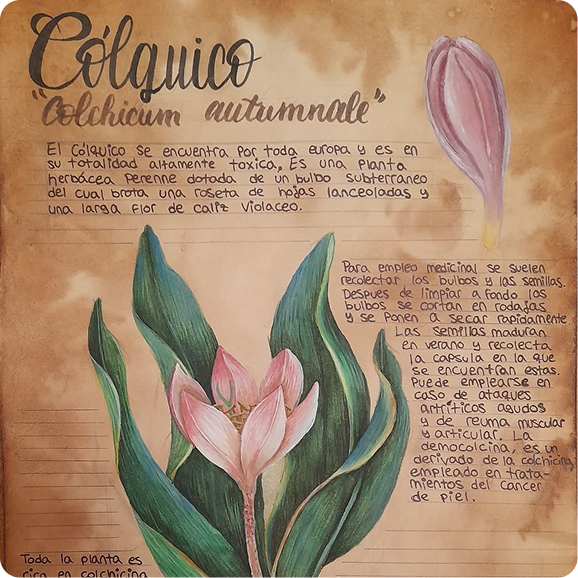 Cólquico
"Colchicum autumnale"
El Cólquico se encuentra por toda europa y es en
su totalidad altamente toxica, Es una planta
herbácea perenne dotada de un bulbo subterraneo
del cual brota una roseta de hojas lanceoladas y
una larga flor de caliz violaceo.
Para empleo medicinal se suelen
recolectar los bulbos y las semillas.
Despues de limpiar a fondo los
bulbos se cortan en rodajas
y se ponen a secar rapidamente
Las semillas maduran
en verano y recolecta
la capsula en la que
se encuentran estas.
Puede emplearse en
caso de ataques
artríticos agudos
y de reuma muscular
y articular. La
democolcina, es un
derivado de la colchicina,
empleado en trata-
mientos del cancer
de piel.
Toda la planta es
rica en colchicina